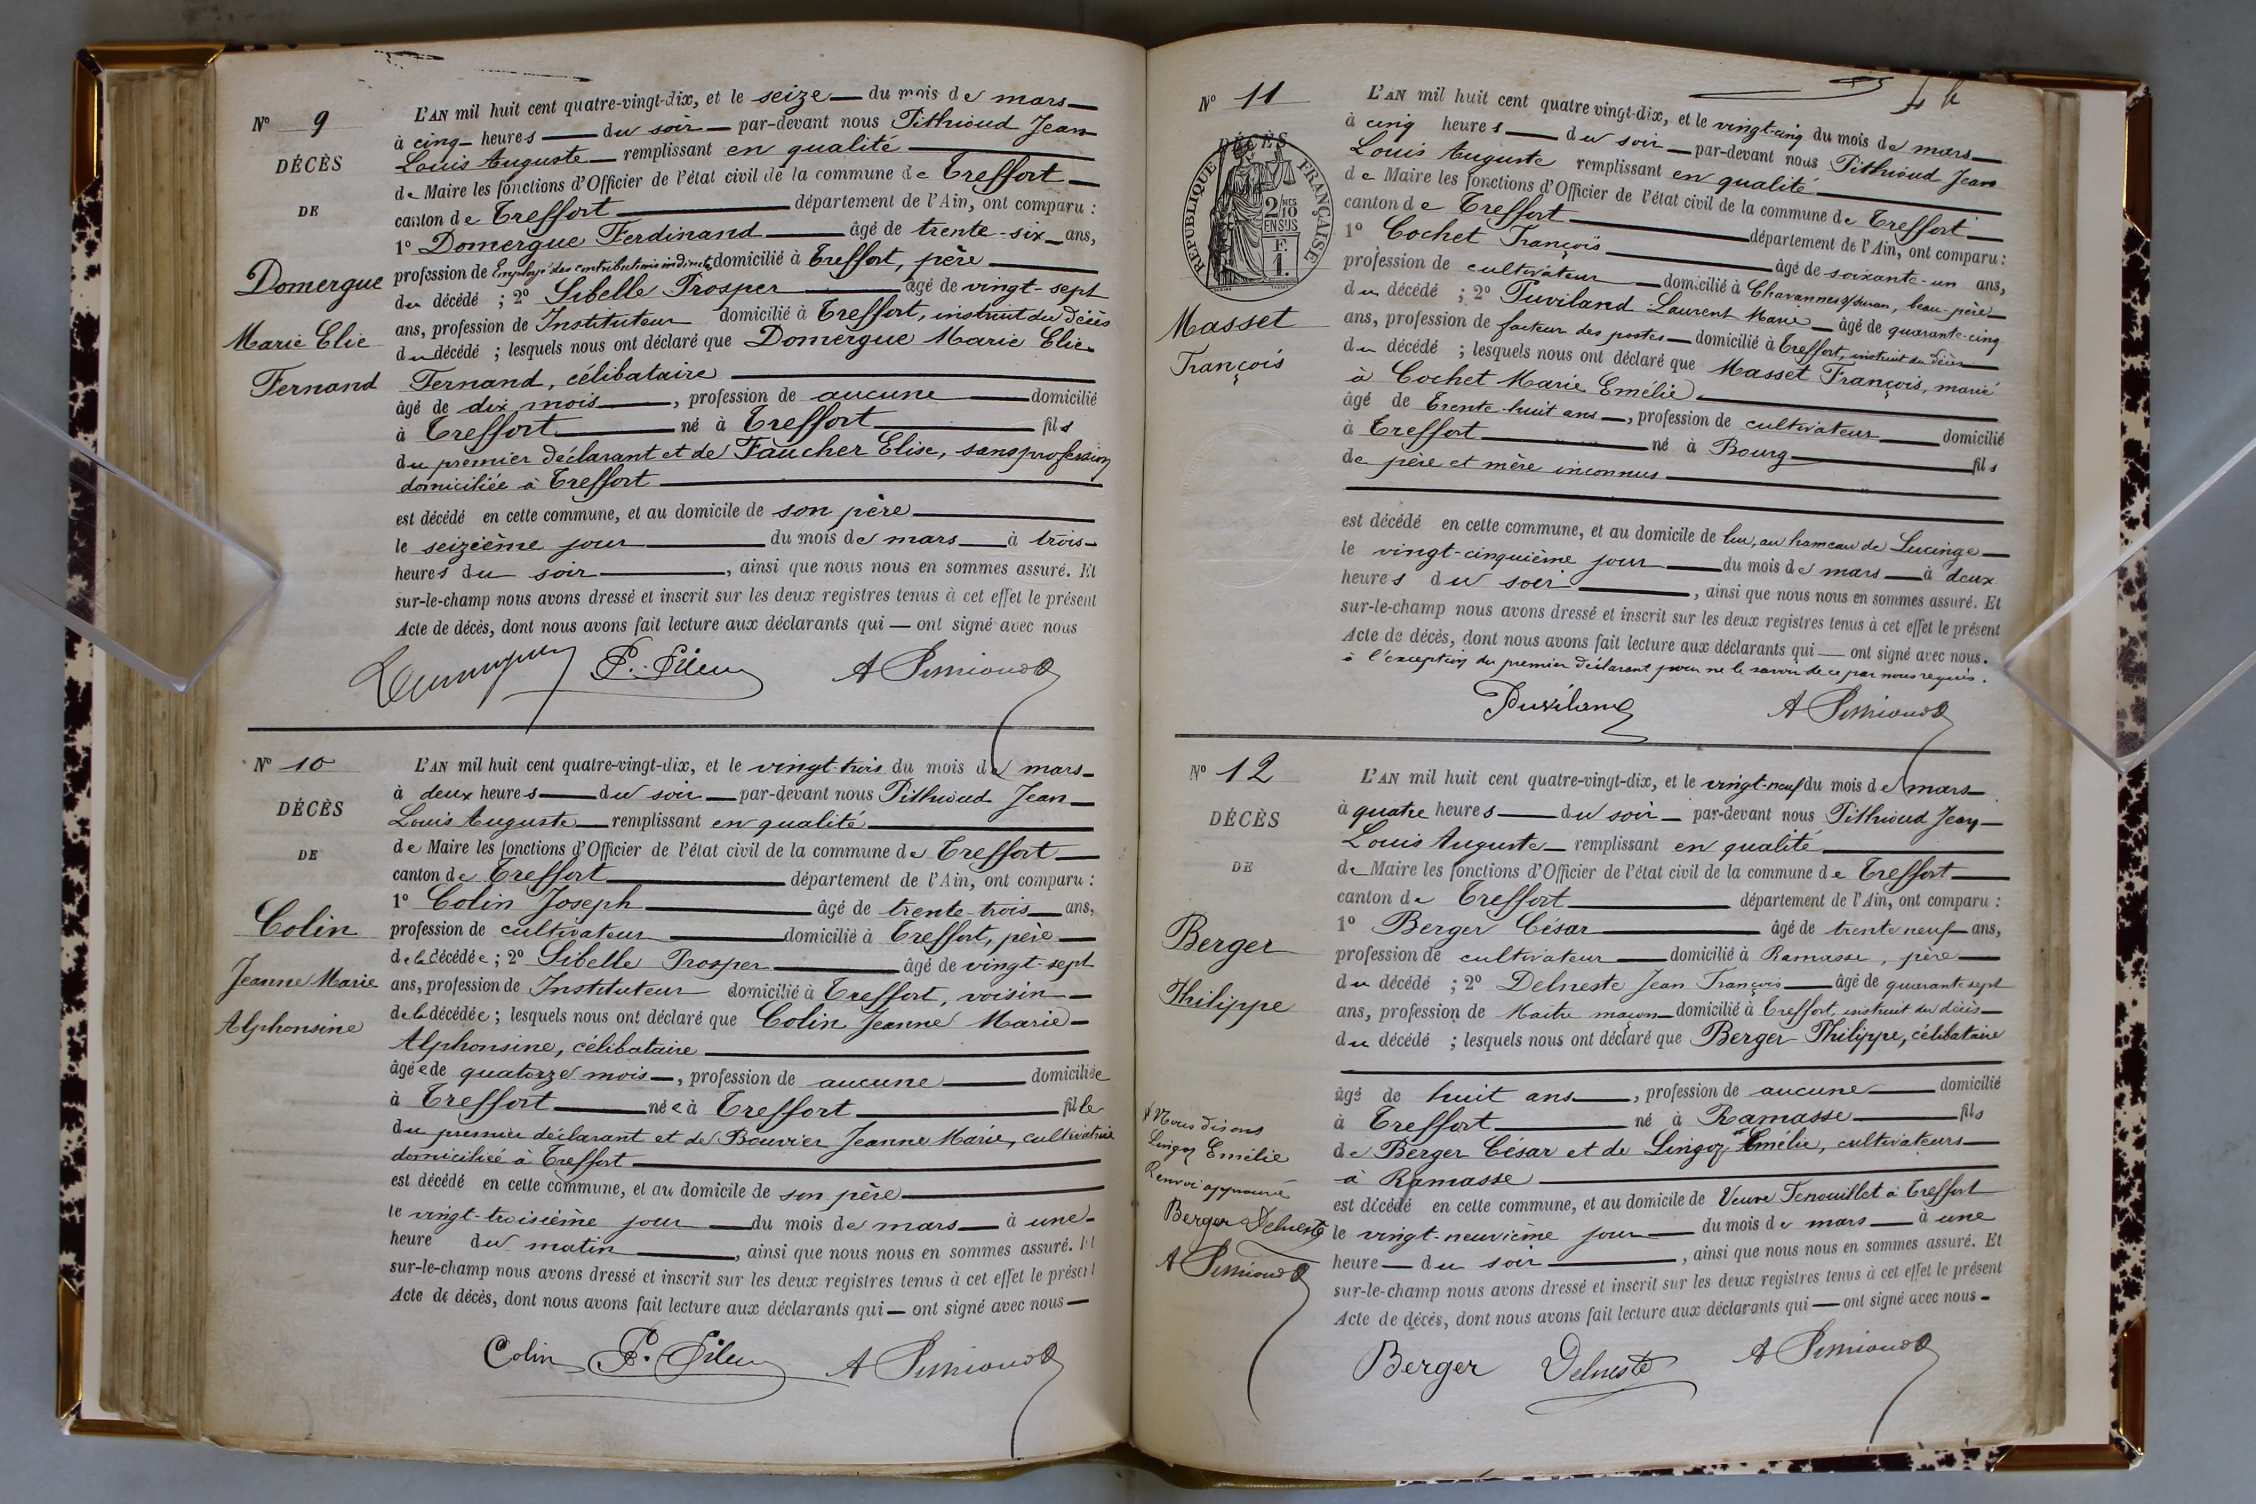 Nº 9
DÉCÈS
DE
Domergue
Marie Elie
Fernand
L'AN mil huit cent quatre-vingt-dix, et le seize du mois de mars
à cinq heures du soir par-devant nous Pithioud Jean
Louis Auguste remplissant en qualité
de Maire les fonctions d'Officier de l'état civil de la commune de Treffort
canton de Treffort département de l'Ain, ont comparu :
1º Domergue Ferdinand âgé de trente-six ans,
profession de Employé des contributions indirectes domicilié à Treffort, père
du décédé ; 2º Sibelle Prosper âgé de vingt-sept
ans, profession de Instituteur domicilié à Treffort, instruit du décès
du décédé ; lesquels nous ont déclaré que Domergue Marie Elie
Fernand, célibataire
âgé de dix mois, profession de aucune domicilié
à Treffort né à Treffort fils
du premier déclarant et de Faucher Elise, sans profession
domiciliée à Treffort
est décédé en cette commune, et au domicile de son père
le seizième jour du mois de mars à trois
heures du soir, ainsi que nous nous en sommes assuré. Et
sur-le-champ nous avons dressé et inscrit sur les deux registres tenus à cet effet le présent
Acte de décès, dont nous avons fait lecture aux déclarants qui — ont signé avec nous
Nº 10
DÉCÈS
DE
Colin
Jeanne Marie
Alphonsine
L'AN mil huit cent quatre-vingt-dix, et le vingt-trois du mois de mars
à deux heures du soir par-devant nous Pithioud Jean
Louis Auguste remplissant en qualité
de Maire les fonctions d'Officier de l'état civil de la commune de Treffort
canton de Treffort département de l'Ain, ont comparu :
1º Colin Joseph âgé de trente-trois ans,
profession de cultivateur domicilié à Treffort, père
de la décédée ; 2º Sibelle Prosper âgé de vingt-sept
ans, profession de Instituteur domicilié à Treffort, voisin
de la décédée ; lesquels nous ont déclaré que Colin Jeanne Marie
Alphonsine, célibataire
âgée de quatorze mois, profession de aucune domiciliée
à Treffort née à Treffort fille
du premier déclarant et de Bouvier Jeanne Marie, cultivatrice
domiciliée à Treffort
est décédé en cette commune, et au domicile de son père
le vingt-troisième jour du mois de mars à une
heure du matin, ainsi que nous nous en sommes assuré. Et
sur-le-champ nous avons dressé et inscrit sur les deux registres tenus à cet effet le présent
Acte de décès, dont nous avons fait lecture aux déclarants qui — ont signé avec nous
Colin
Nº 11
DÉCÈS
RÉPUBLIQUE FRANÇAISE
2 10
EN SUS
F.
1.
Masset
François
L'AN mil huit cent quatre vingt-dix, et le vingt-cinq du mois de mars
à cinq heures du soir par-devant nous Pithioud Jean
Louis Auguste remplissant en qualité
de Maire les fonctions d'Officier de l'état civil de la commune de Treffort
canton de Treffort département de l'Ain, ont comparu :
1º Cochet François âgé de soixante-un ans,
profession de cultivateur domicilié à Chavannes s/ Suran, beau-père
du décédé ; 2º Puviland Laurent Marie âgé de quarante-cinq
ans, profession de facteur des postes domicilié à Treffort, instruit du décès
du décédé ; lesquels nous ont déclaré que Masset François, marié
à Cochet Marie Emélie
âgé de Trente-huit ans, profession de cultivateur domicilié
à Treffort né à Bourg fils
de père et mère inconnus
est décédé en cette commune, et au domicile de lui, au hameau de Lucinge
le vingt-cinquième jour du mois de mars à deux
heures du soir, ainsi que nous nous en sommes assuré. Et
sur-le-champ nous avons dressé et inscrit sur les deux registres tenus à cet effet le présent
Acte de décès, dont nous avons fait lecture aux déclarants qui — ont signé avec nous.
à l'exception du premier déclarant pour ne le savoir de ce par nous requis.
Puviland
Nº 12
DÉCÈS
DE
Berger
Philippe
L'AN mil huit cent quatre-vingt-dix, et le vingt-neuf du mois de mars
à quatre heures du soir par-devant nous Pithioud Jean
Louis Auguste remplissant en qualité
de Maire les fonctions d'Officier de l'état civil de la commune de Treffort
canton de Treffort département de l'Ain, ont comparu :
1º Berger César âgé de trente neuf ans,
profession de cultivateur domicilié à Ramasse, père
du décédé ; 2º Delneste Jean François âgé de quarante sept
ans, profession de Maître maçon domicilié à Treffort, instruit du décès
du décédé ; lesquels nous ont déclaré que Berger Philippe, célibataire
âgé de huit ans, profession de aucune domicilié
à Treffort né à Ramasse fils
de Berger César et de Lingoz Emélie, cultivateurs
à Ramasse
est décédé en cette commune, et au domicile de Veuve Fenouillet à Treffort
le vingt-neuvième jour du mois de mars à une
heure du soir, ainsi que nous nous en sommes assuré. Et
sur-le-champ nous avons dressé et inscrit sur les deux registres tenus à cet effet le présent
Acte de décès, dont nous avons fait lecture aux déclarants qui — ont signé avec nous
Nous disons
Lingoz Emélie
Renvoi approuvé
Berger Delneste
Berger Delneste